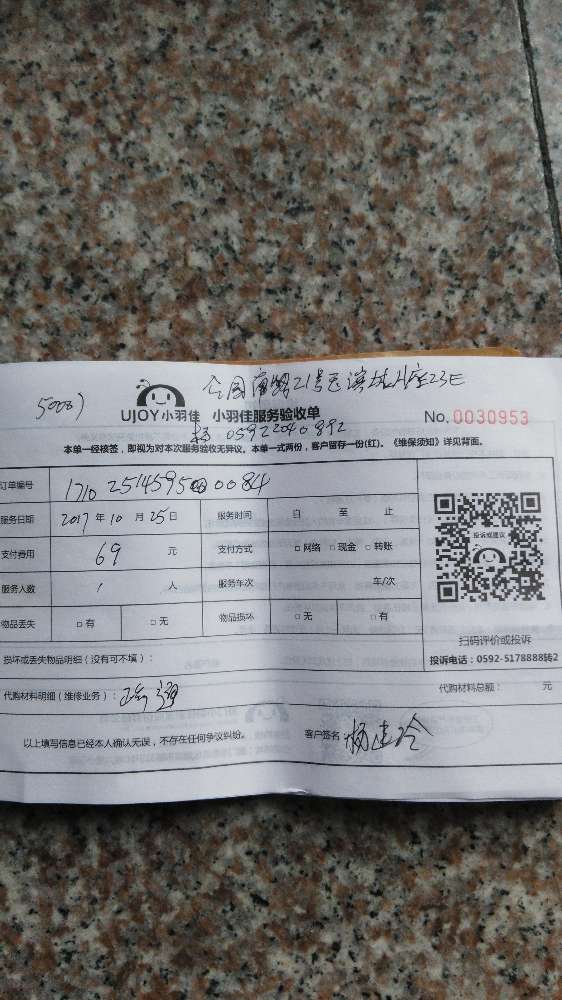 5008)
UJOY小羽佳 小羽佳服务验收单
No. 0030953
杨 05922040892
本单一经核签，即视为对本次服务验收无异议。本单一式两份，客户留存一份(红)。《维保须知》详见背面。
订单编号 1710 2514595 0084
服务日期 2017 年 10 月 25 日 服务时间 自 至 止
支付费用 69 元 支付方式 □ 网络 □ 现金 □ 转账
服务人数 1 人 服务车次 车/次
物品丢失 □ 有 □ 无 物品损坏 □ 无 □ 有
投诉或建议
扫码评价或投诉
投诉电话：0592-5178888转2
损坏或丢失物品明细（没有可不填）：
代购材料明细（维修业务）：
代购材料总额： 元
以上填写信息已经本人确认无误，不存在任何争议纠纷。 客户签名